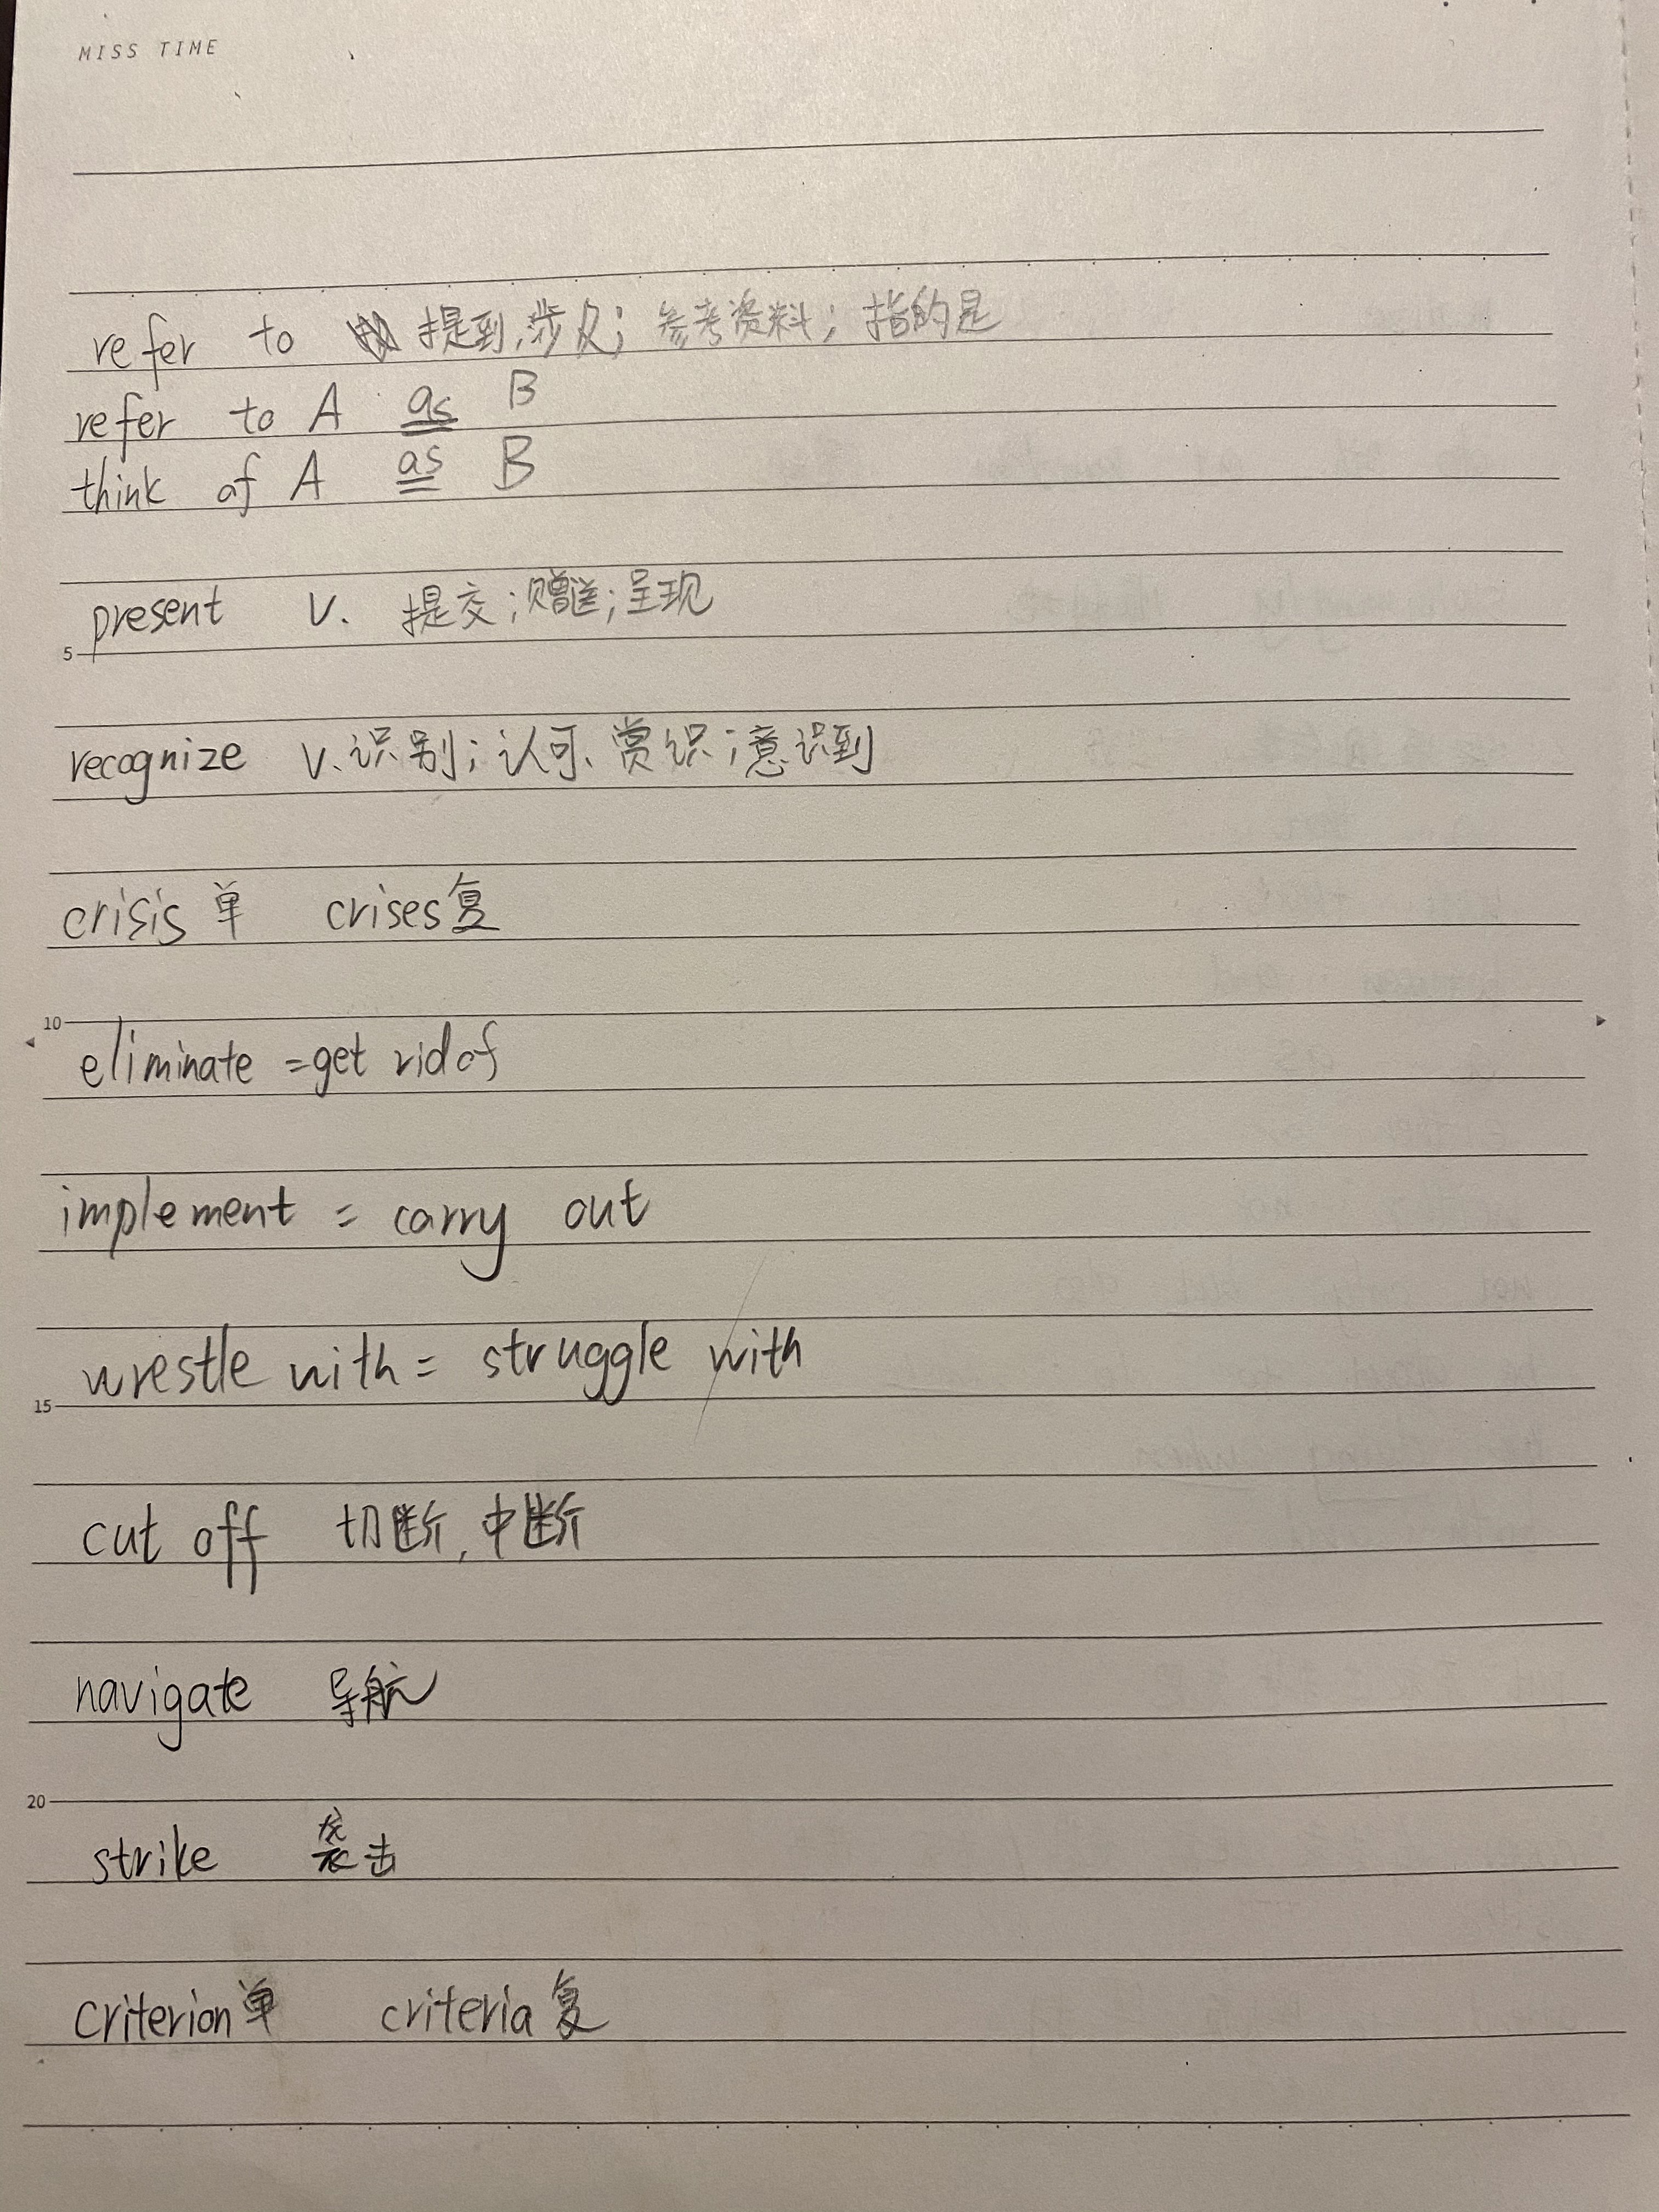 MISS TIME
refer to 提到,涉及;参考资料;指的是
refer to A as B
think of A as B
5 present v. 提交;赠送;呈现
recognize v.识别;认可、赏识;意识到
crisis 单 crises 复
10 eliminate =get rid of
implement = carry out
15 wrestle with = struggle with
cut off 切断,中断
navigate 导航
20 strike 袭击
criterion 单 criteria 复